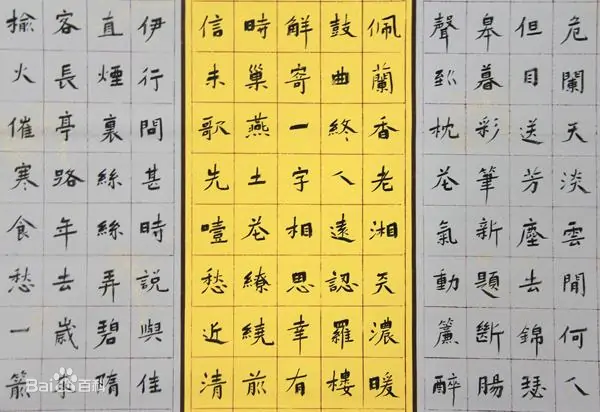 危闌天淡雲閒何人
但目送芳塵去錦瑟
皋暮彩筆新題斷腸
聲到枕花氣動簾醉
佩蘭香老湘天濃暖
鼓曲終人遠認羅樓
解寄一字相思幸有
時巢燕土花繚繞前
信未歌先噎愁近清
伊行問甚時說與佳
直煙裏絲絲弄碧隋
客長亭路年去歲
榆火催寒食愁一箭
Bai百科